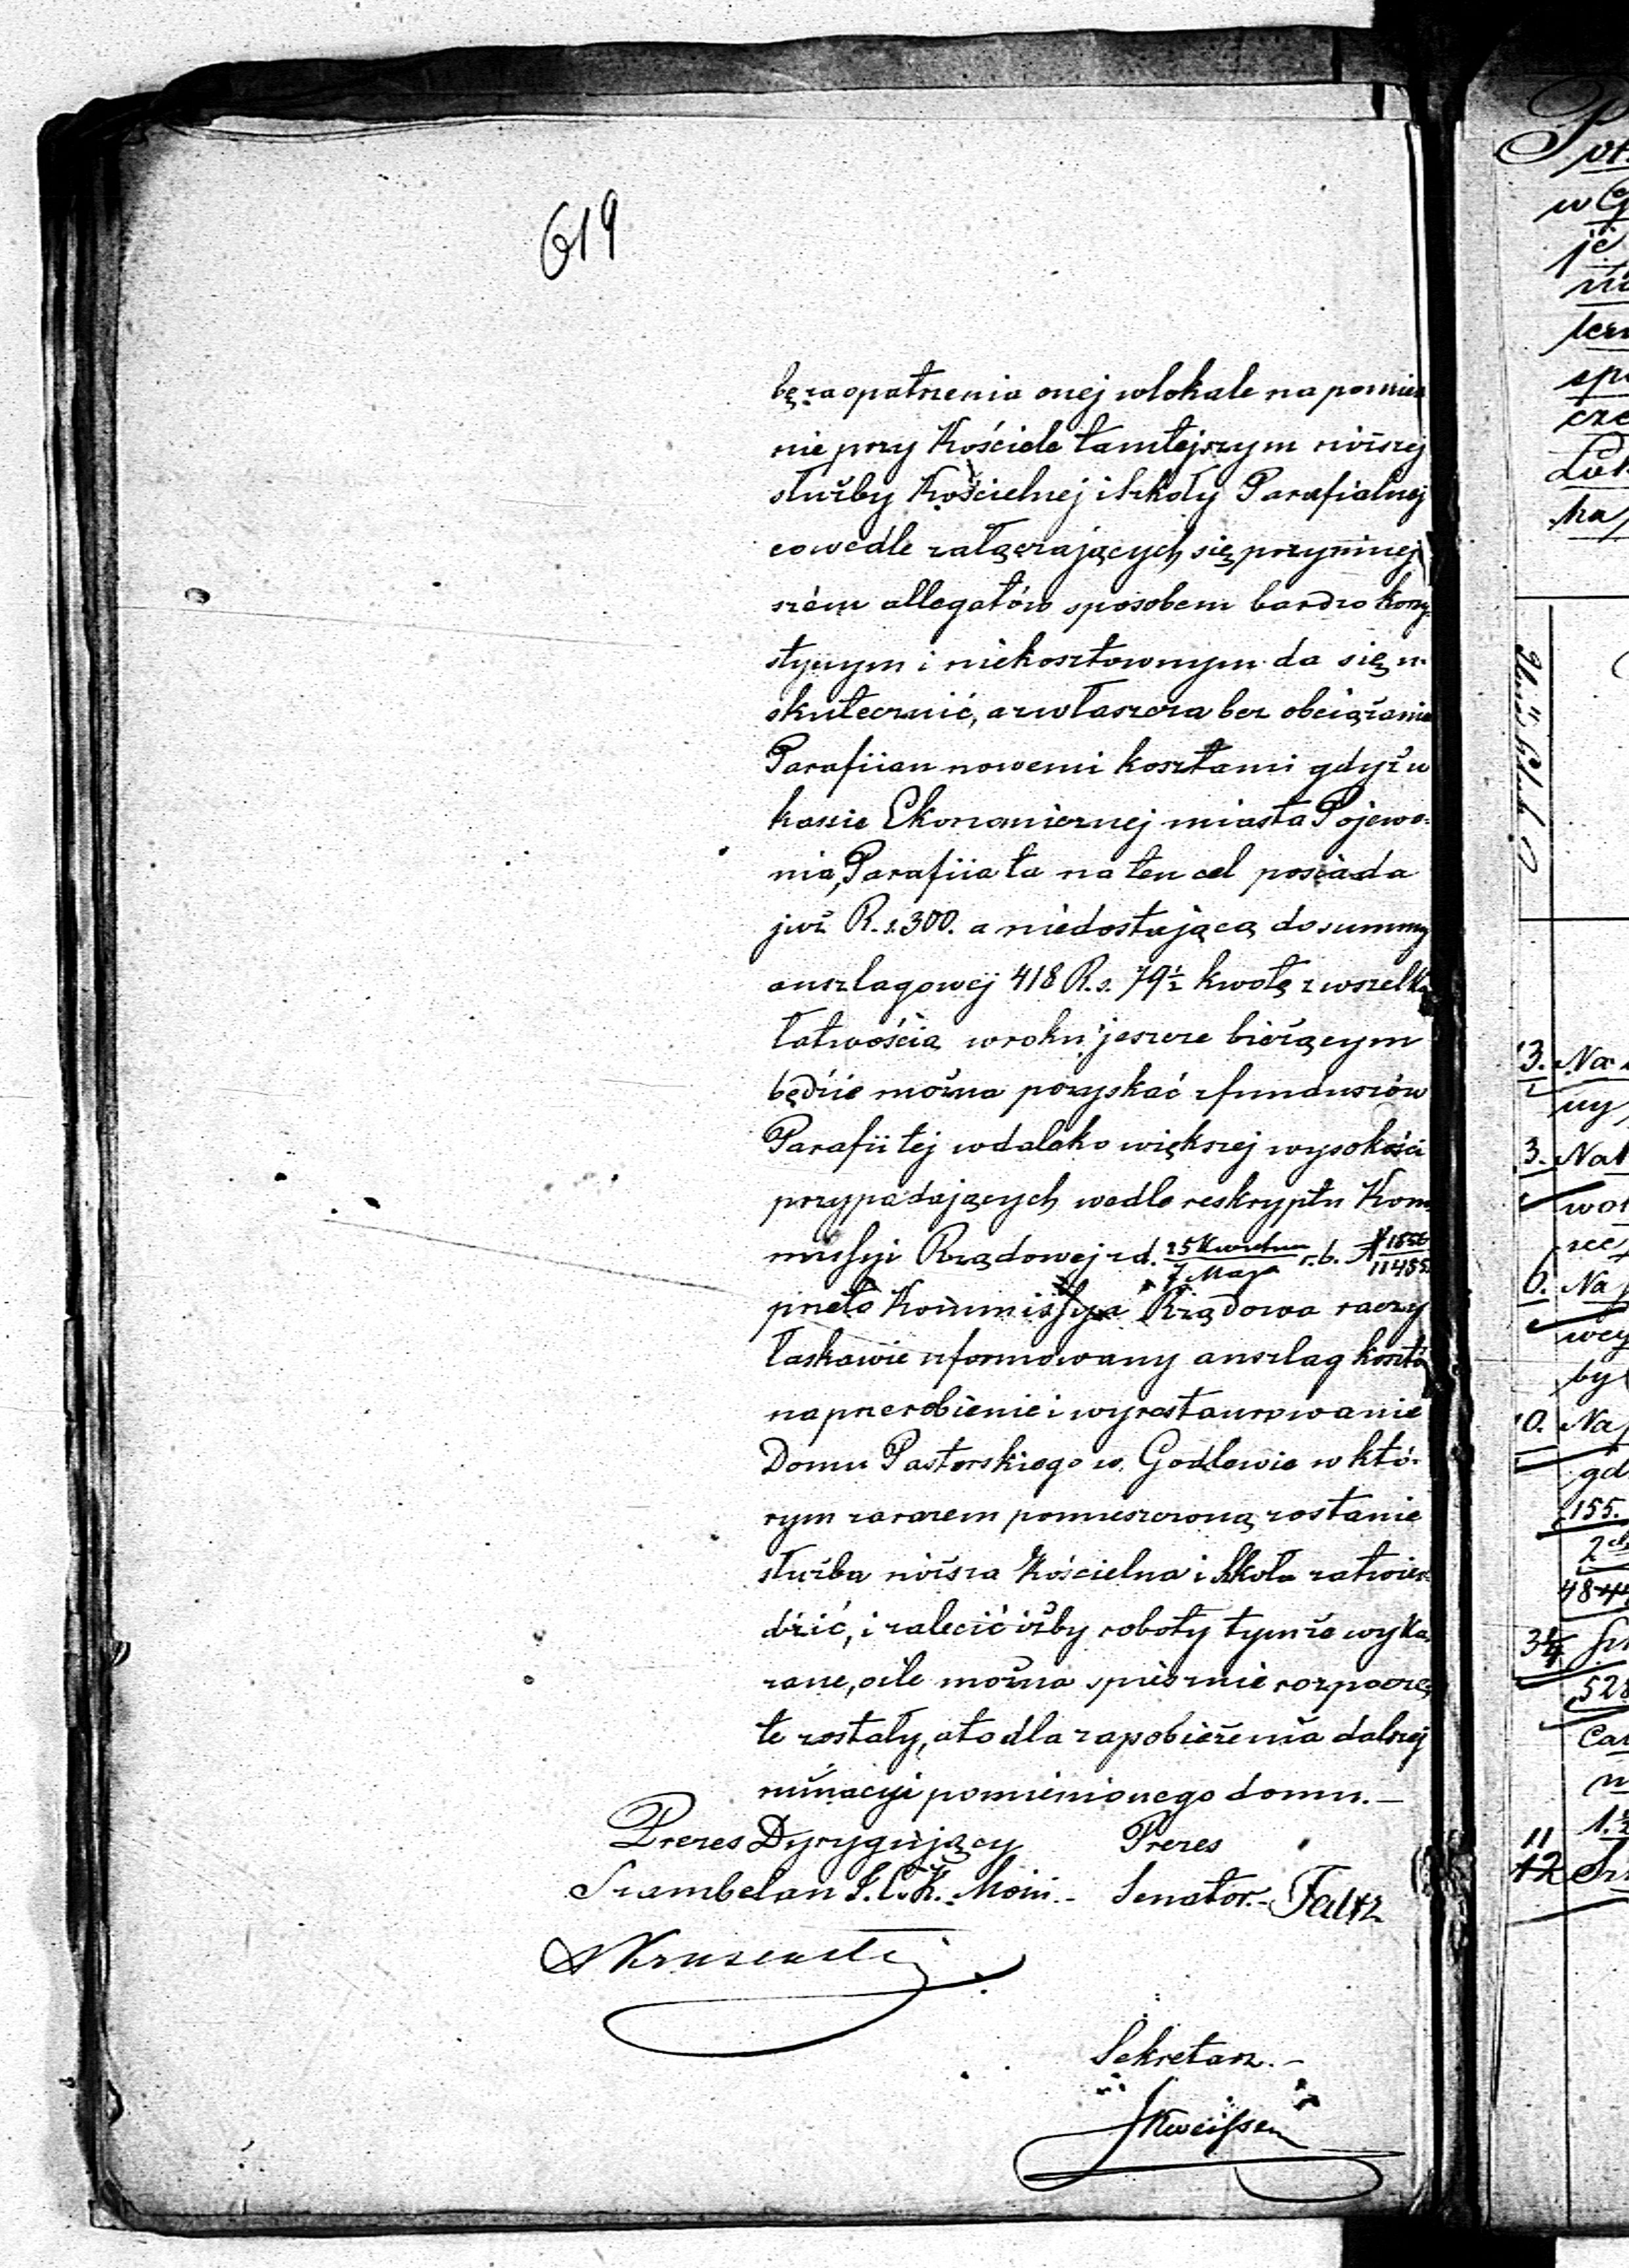 619
bę zaopatrzenia onej w lokale na pomien
nie przy Kościele tamtejszym niższej
służby Kościelnej i Szkoły Parafialnej
co wedle załączających się przy niniej
szém allegatów sposobem bardzo korzy-
stnym i niekosztownym da się u-
skutecznić, a zwłaszcza bez obciążania
Parafiian nowemi kosztami gdyż w
kassie Ekonomicznej miasta Pojewo-
nia, Parafiia ta na ten cel posiada
już R. s. 300. a niedostającą do summy
anszlagowej 418 R. s. 79½ kwotę z wszelką
łatwością w roku jeszcze bieżącym
będzie można pozyskać z funduszów
Parafii tej w daleko większej wysokości
przypadających wedle reskryptu Kom
missyi Rządowej z d. 25 Kwietnia / 7 Maja r. b. N
przeto Kommissya Rządowa raczy
łaskawie uformowany anszlag kosztów
na przerobienie i wyrestaurowanie
Domu Pastorskiego w. Godlewie w któ-
rym zarazem pomieszczoną zostanie
służba niższa Kościelna i Szkoła zatwier-
dzić, i zalecić iżby roboty tymże wyka
zane, o ile można spiesznie rozpoczę
te zostały, a to dla zapobieżenia dalszej
ruinacyi pomienionego domu. —
Prezes Dyrygujący Prezes
Szambelan J. C. K. Mości. - Senator. - Faltz
Sekretarz. -